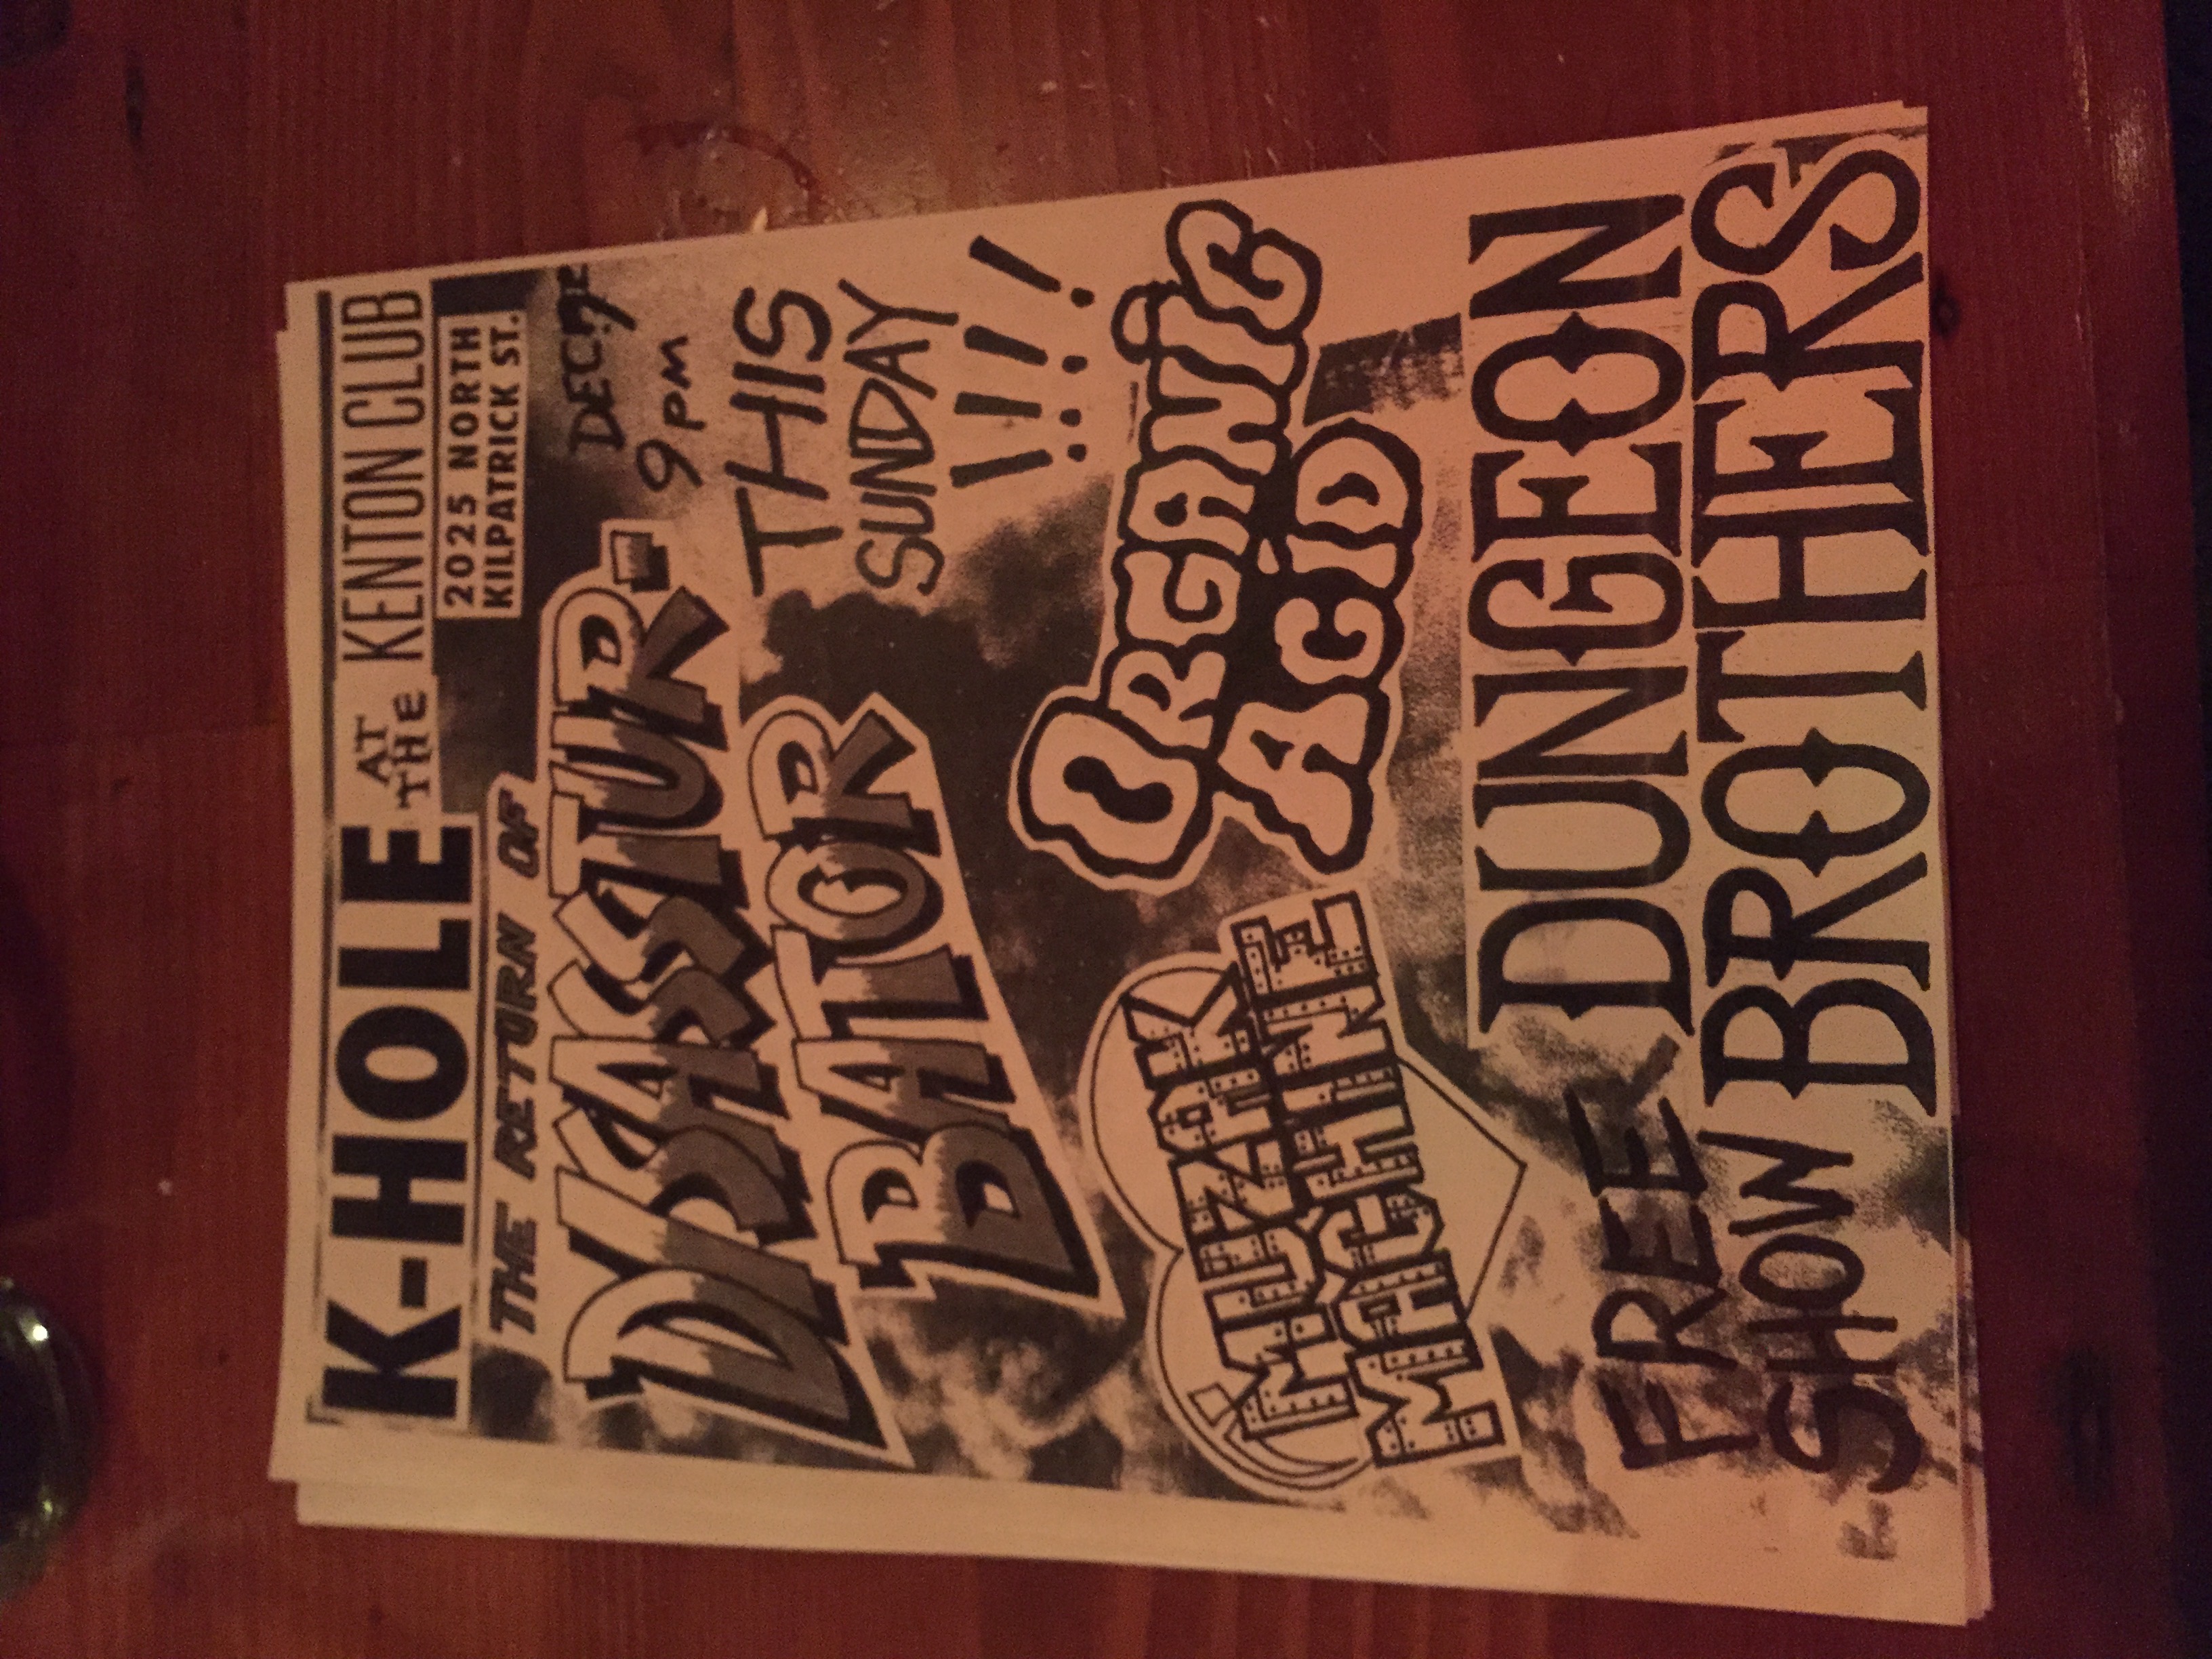 K-HOLE AT THE KENTON CLUB
2025 NORTH
KILPATRICK ST.
THE RETURN OF
DISASSTUR-
BATOR
DEC. 7
9 PM
THIS
SUNDAY
!!!!
MUZAK
MACHINE
ORGANIC
ACID
FREE
SHOW
DUNGEON
BROTHERS